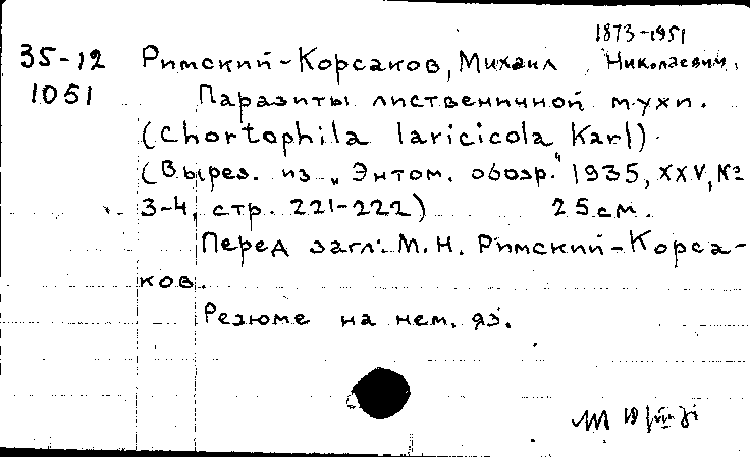 1873-1951
35-12 Римский-Корсаков, Михаил Николаевич.
1051 Паразиты лиственничной мухи.
(Chortophila laricicola Karl).
(Вырез. из „Энтом. обозр." 1935, XXV, №
3-4, стр. 221-222) 25 см.
Перед загл: М.Н. Римский-Корса-
ков.
Резюме на нем. яз.